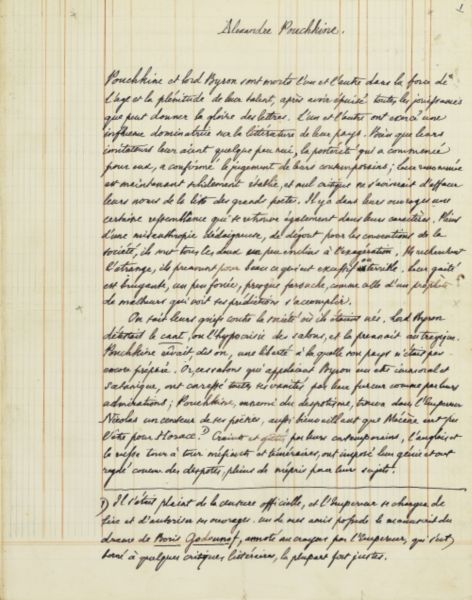 1
Alexandre Pouchkine.
Pouchkine et lord Byron sont morts l'un et l'autre dans la force de
l'age et la plénitude de leur talent, après avoir épuisé toutes les jouissances
que peut donner la gloire des lettres. L'un et l'autre ont exercé une
influence dominatrice sur la littérature de leur pays. Bien que leurs
imitateurs leur aient quelque peu nui, la postérité qui a commencé
pour eux, a confirmé le jugement de leurs contemporains; leur renommée
est maintenant solidement établie, et nul critique ne s'aviserait d'effacer
leurs noms de la liste des grands poètes. Il y a dans leurs ouvrages une
certaine ressemblance qui se retrouve également dans leurs caractères. Pleins
d'une misanthropie dédaigneuse, de dégoût pour les conventions de la
société, ils ont tous les deux un peu enclins à l'exagération. Ils recherchent
l'étrange, ils prennent pour beau ce qui est excessif ou terrible. Leur gaité
est bruyante, un peu forcée, presque farouche, comme celle d'un prophète
de malheurs qui voit ses prédictions s'accomplir.
On sait leurs griefs contre la société où ils étaient nés. Lord Byron
détestait le cant, ou l'hypocrisie des salons, et la prenait au tragique.
Pouchkine rêvait, dit-on, une liberté à laquelle son pays n'était pas
encore préparé. Or, ces salons qui appelaient Byron un athée immoral et
satanique, ont caressé toutes ses vanités par leur fureur comme par leurs
admirations; Pouchkine, ennemi du despotisme, trouva dans l'Empereur
Nicolas un censeur de ses poésies, aussi bienveillant que Mécène eut pu
l'être pour Horace. 1) Craints et gâtés par leurs contemporains, l'anglais et
le russe tour à tour méfiants et téméraires, ont imposé leur génie et ont
régné comme des despotes, pleins de mépris pour leurs sujets.
1) Il s'était plaint de la censure officielle, et l'Empereur se chargea de
lire et d'autoriser ses ouvrages. un de mes amis possède le manuscrit du
drame de Boris Godounof, annoté au crayon par l'Empereur, qui s'est
borné à quelques critiques littéraires, la plupart fort justes.